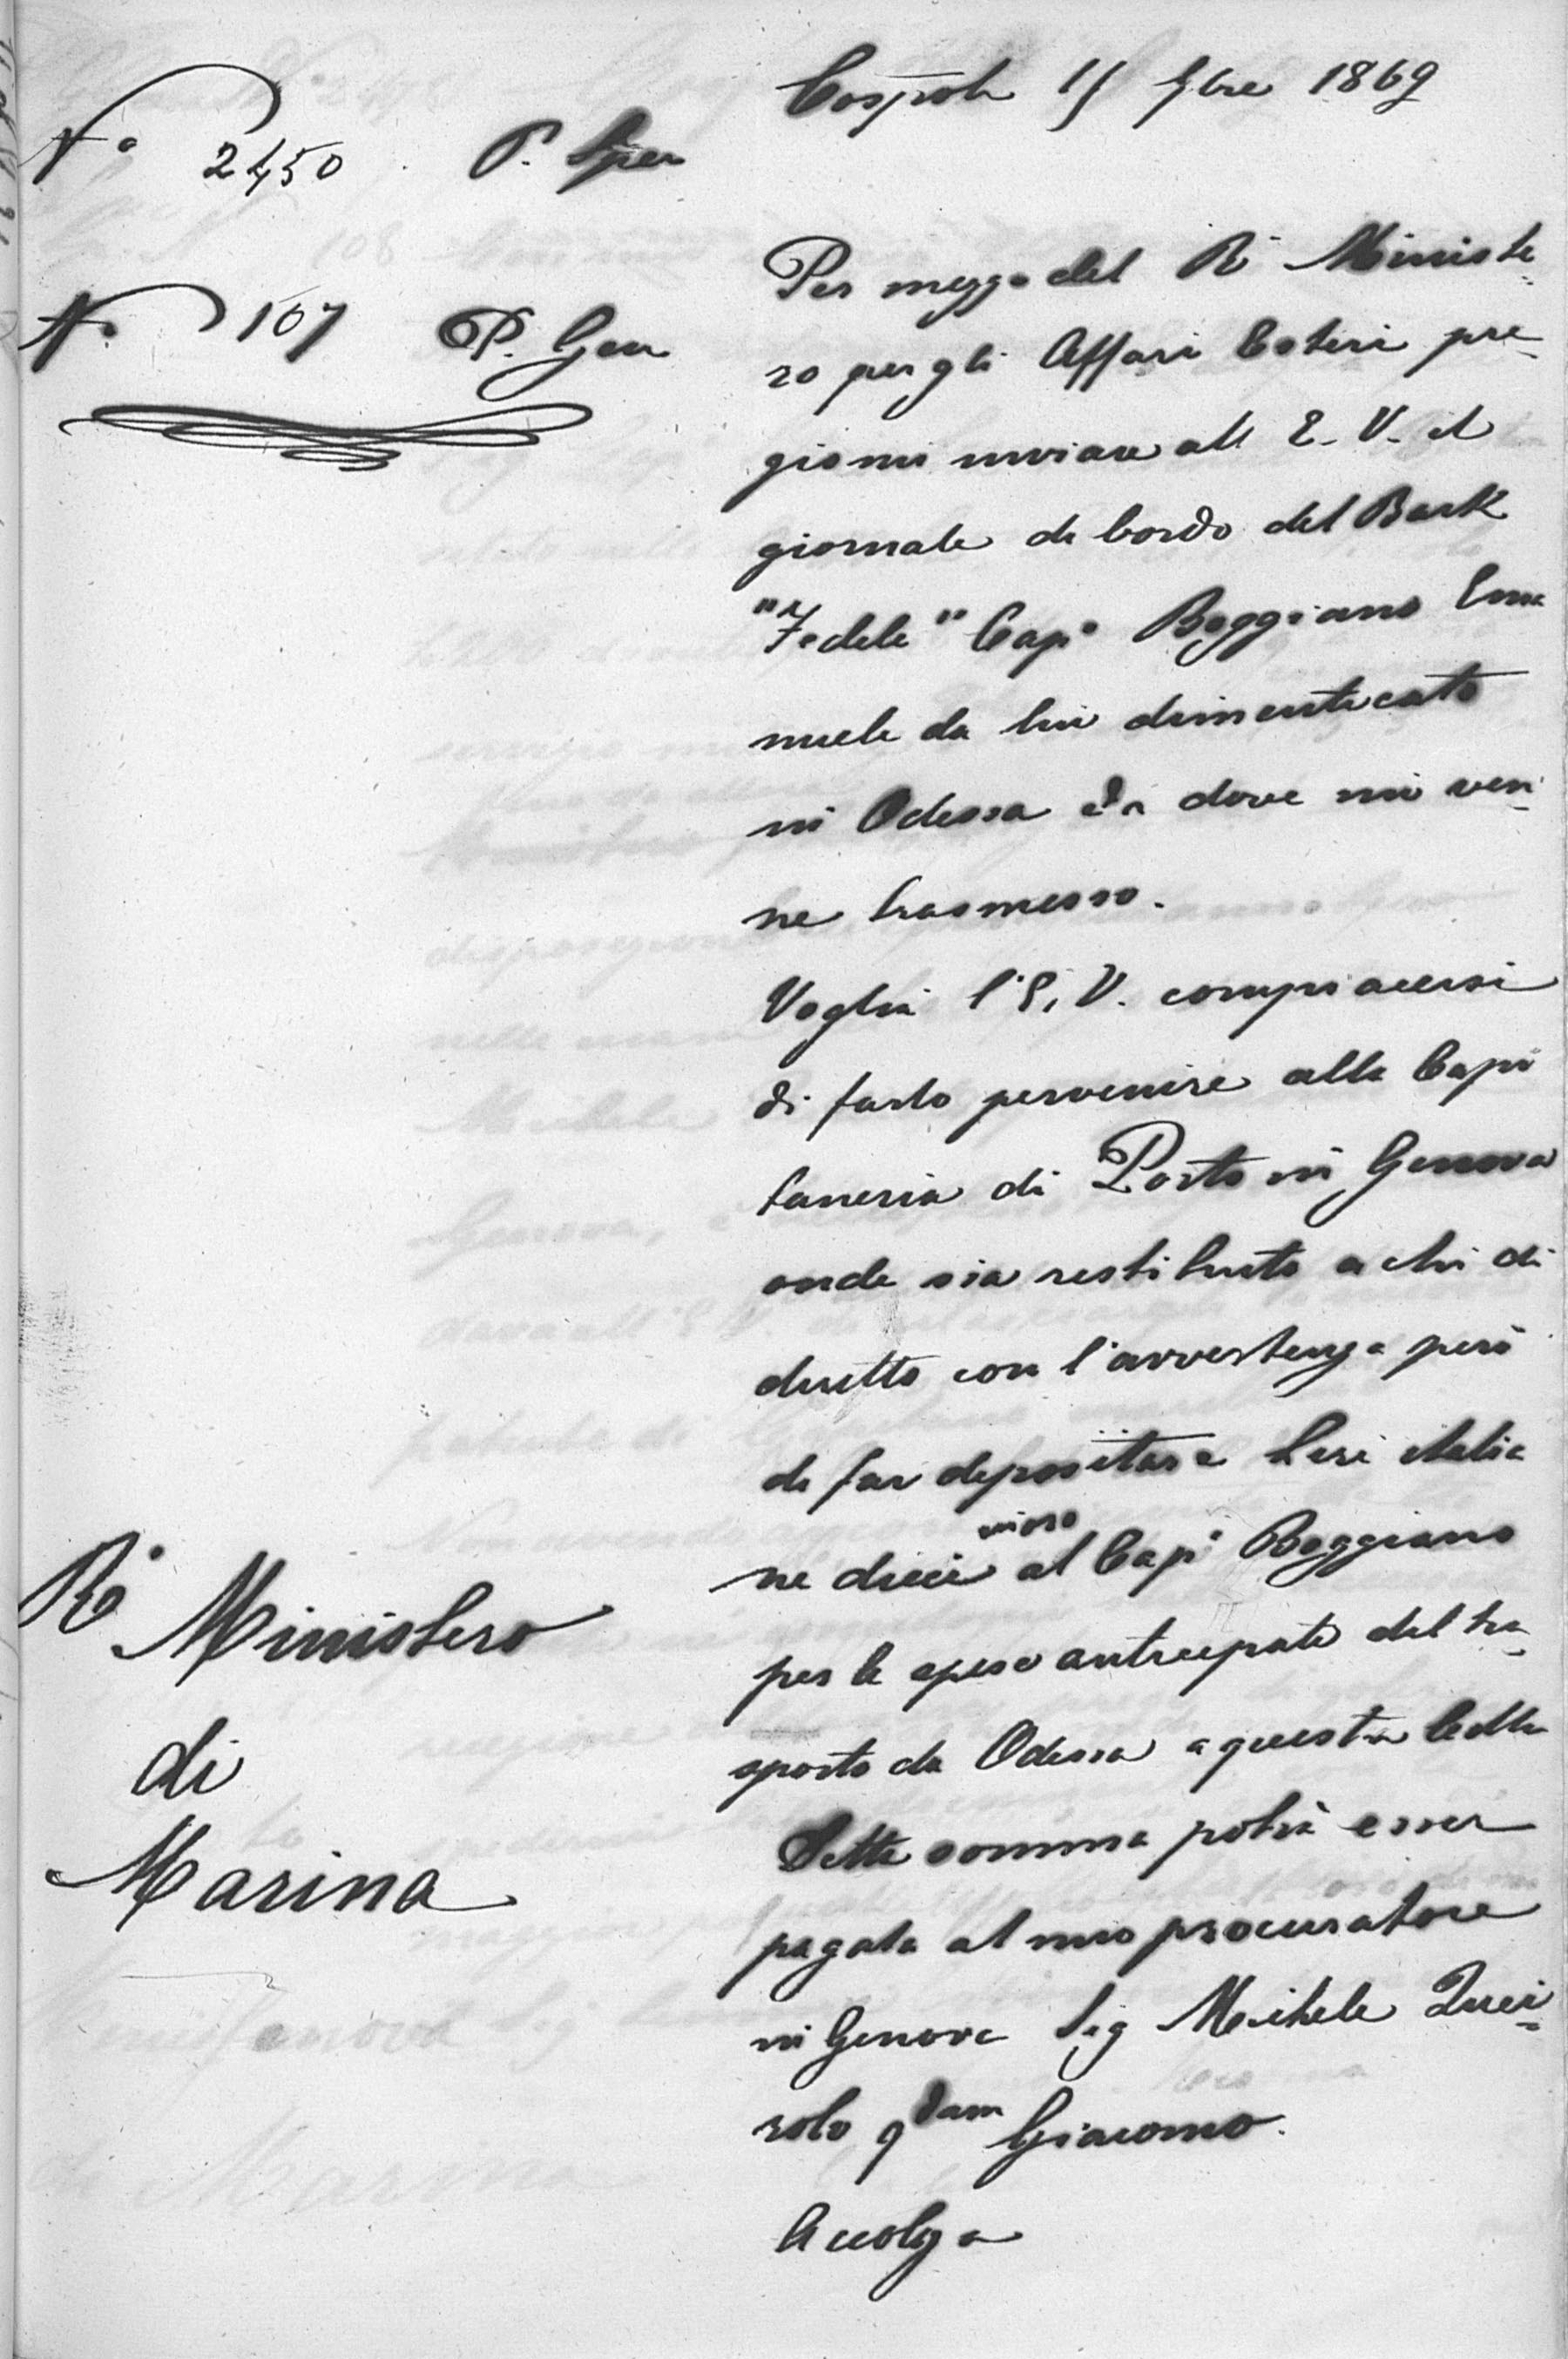 Cospoli 15 9bre 1869
No 2450 P. Spec
No 107 P. Gen
Per mezzo del Ro Ministe
ro per gli Affari Esteri pre
giomi inviare all E. V. il
giornale di bordo del Bark
"Fedele" Capo Boggiano Ema
nuele da lui dimenticato
in Odessa da dove mi ven
ne trasmesso.
Voglia l'E. V. compiacersi
di farlo pervenire alla Capi
taneria di Porto in Genova
onde sia restituito a chi di
diritto con l'avvertenza però
di far depositare Lire italia
ne dieci al Capo Boggiano
per le spese anticipate del tra
sporto da Odessa a questa
Detta somma potrà esser
pagata al mio procuratore
in Genova Sig Michele Quei
rolo qdam Giacomo.
Accolga
Ro Ministero
di
Marina